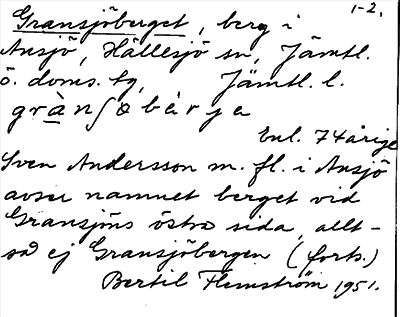 1-2.
Gransjöberget, berg i
Ansjö, Hällesjö sn, Jämtl.
ö. doms. tg, Jämtl. l.
grànʃøbàrja
Enl. 74årige
Sven Andersson m. fl. i Ansjö
avser namnet berget vid
Gransjöns östra sida, allt-
så ej Gransjöbergen (forts.)
Bertil Flemström 1951.